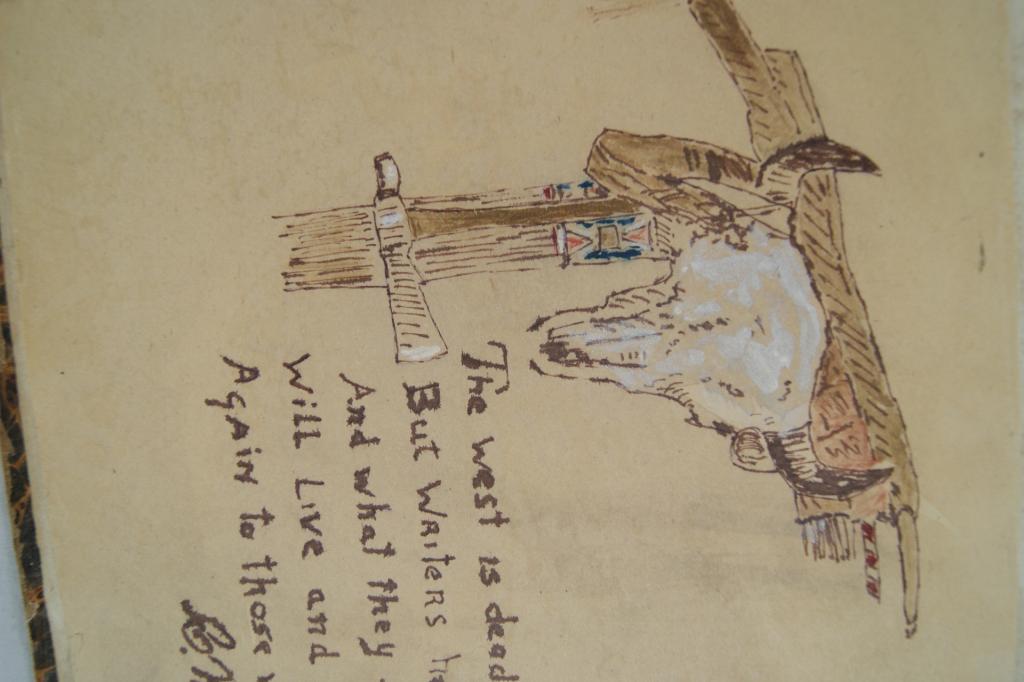 The west is dead
But Writers
And what they
Will Live and
Again to those